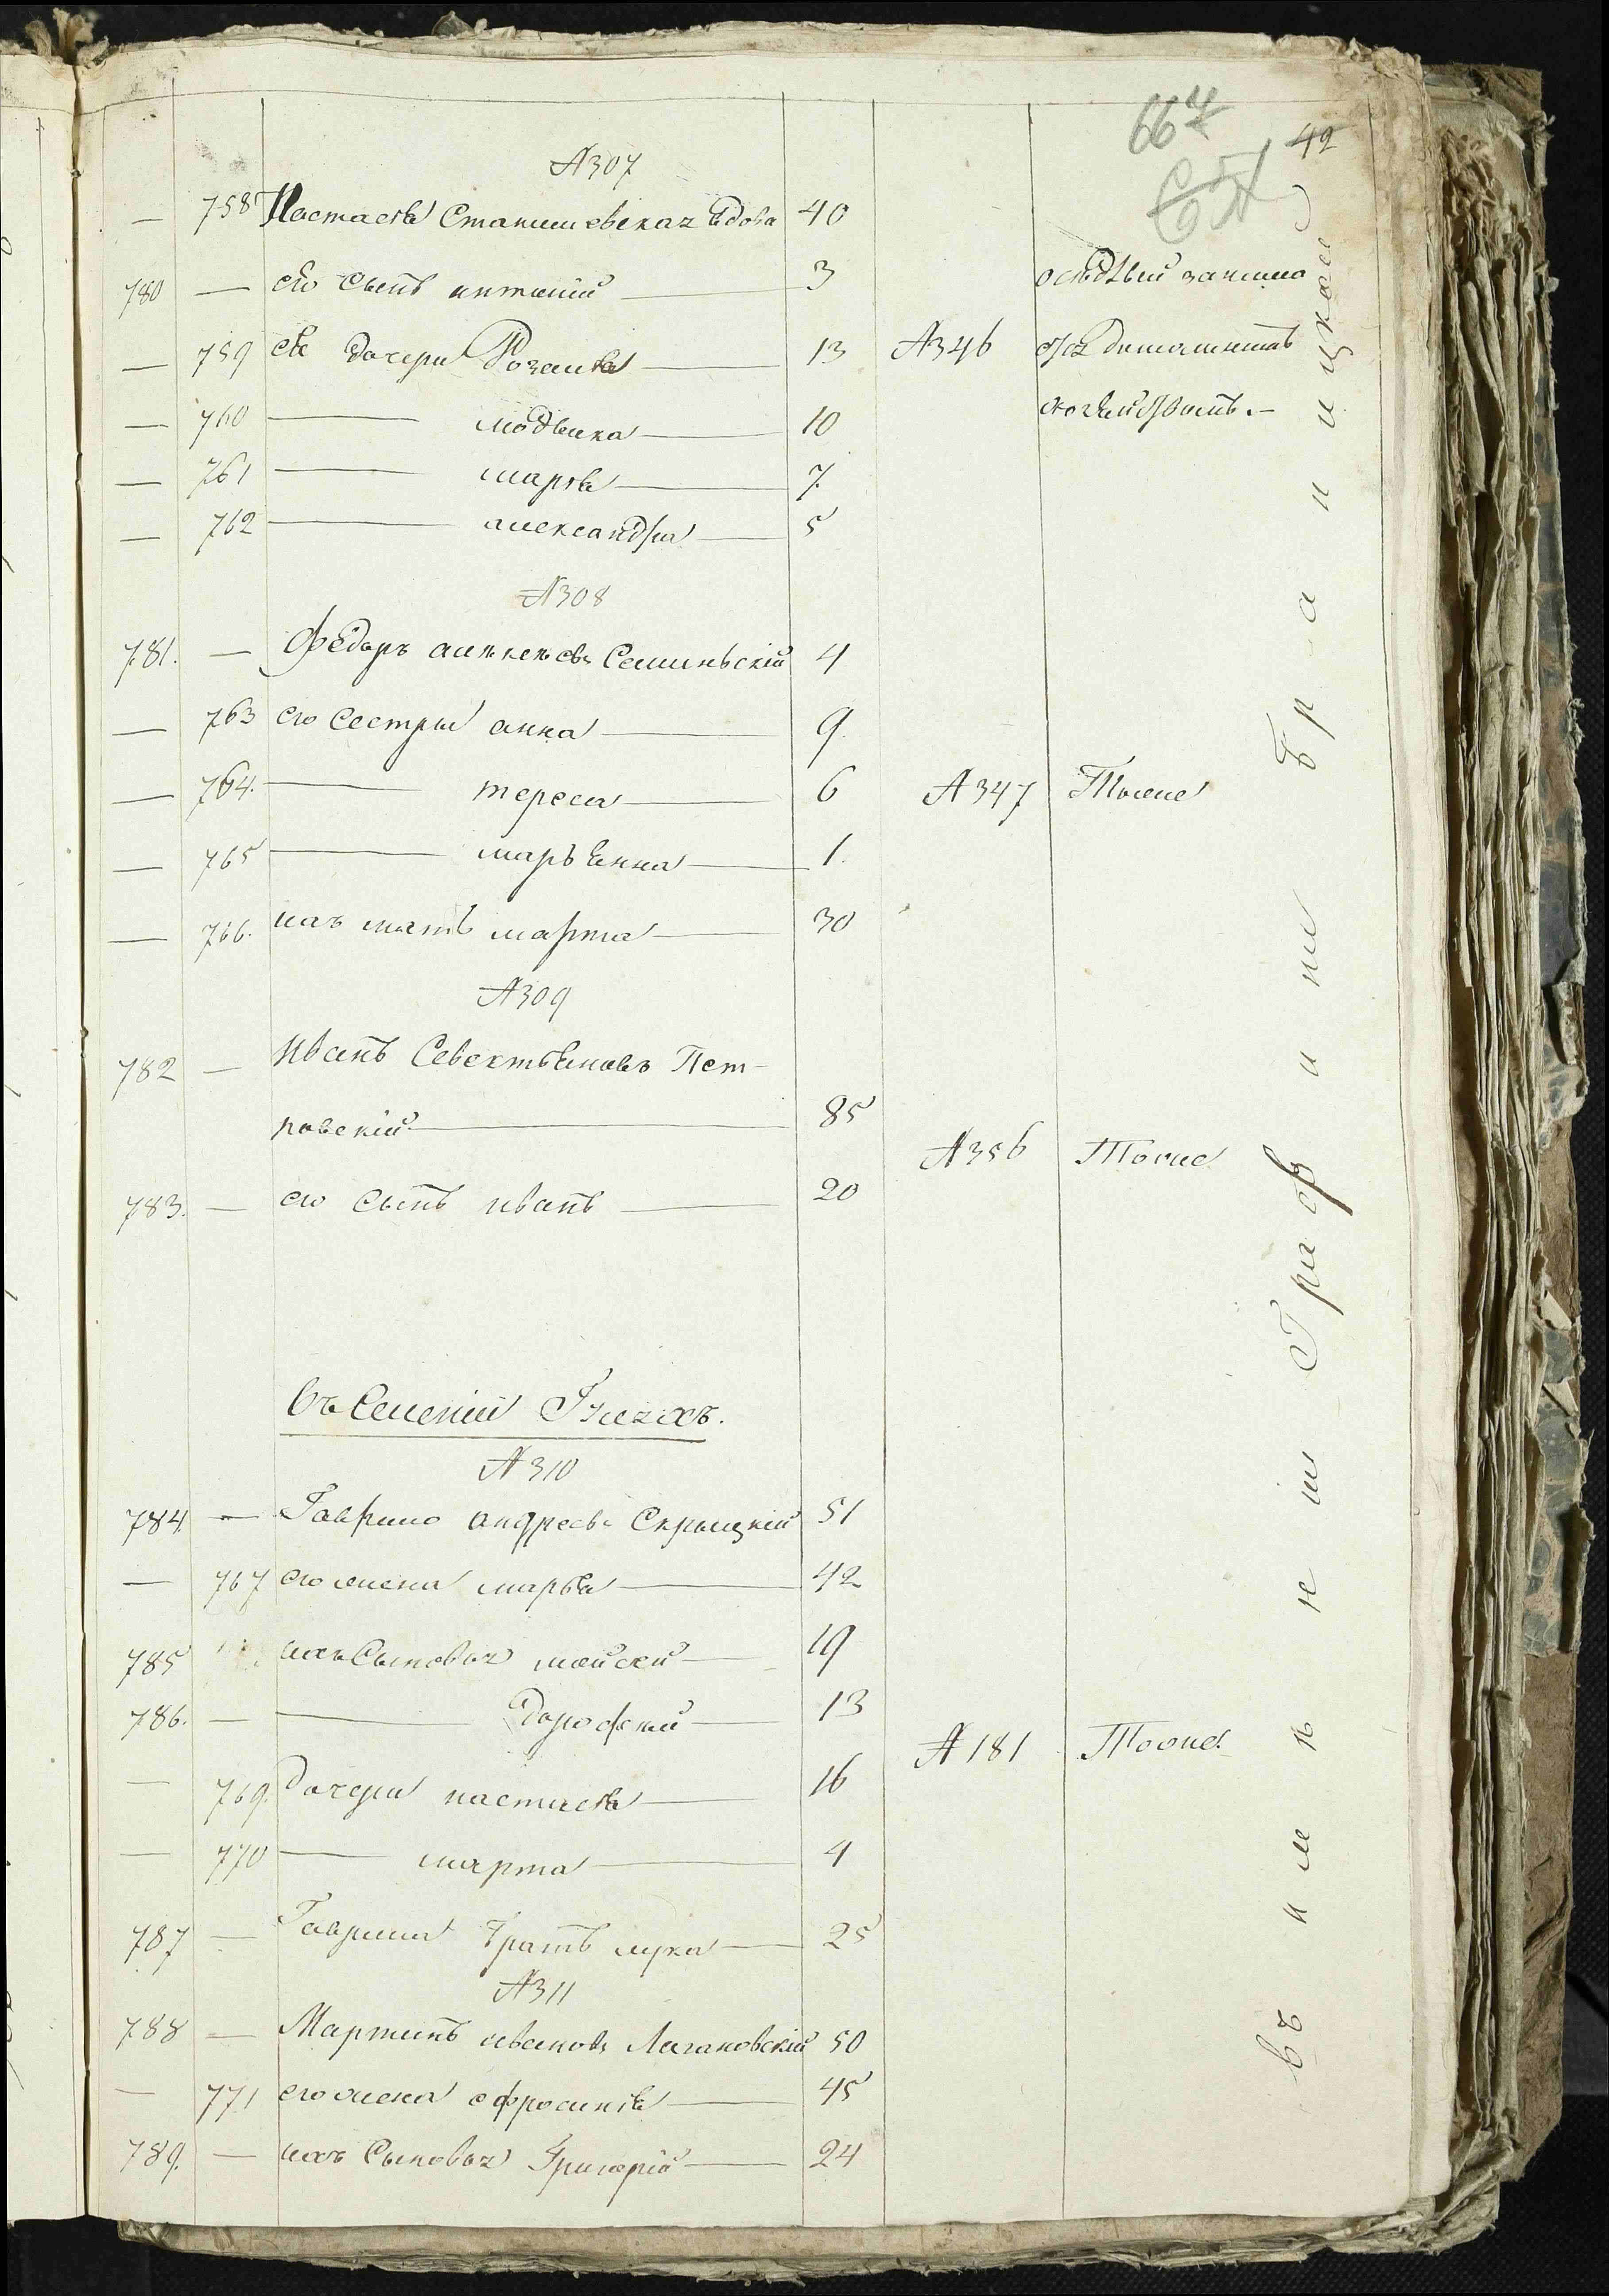 667
42
№ 307
— 758 Настасья Станишевская вдова 40
780 — ея сынъ антоній — 3
— 759 ея дочери Розалія — 13 № 346
— 760 — людвика — 10
— 761 — марья — 7
— 762 — александра — 5
№ 308
781. — Федоръ алексеевъ Семинскій 4
— 763 его сестры анна — 9
— 764. — тереса — 6 № 347 Тоже
— 765 — марьянна — 1.
— 766. ихъ мать марта — 30
№ 309
782 — Иванъ Севестьяновъ Пет-
ровскій — 85 № 356 Тоже
783. — его сынъ иванъ — 20
въ Селеніи
№ 310
784. — Гаврило андреевъ Скрыцкій 51
— 767 его жена марья — 42
785 ихъ сыновья мойсей — 19
786. — — дорофей — 13 № 181 Тоже
— 769. дочери настасья — 16
— 770 — марта — 4
787 — Гаврила братъ лука — 25
№ 311
788 — Мартинъ ивановъ Лагановскій 50
— 771 его жена офросинья — 45
789. — ихъ сыновья Григорій — 24
въ имѣніи Графини Браницкой